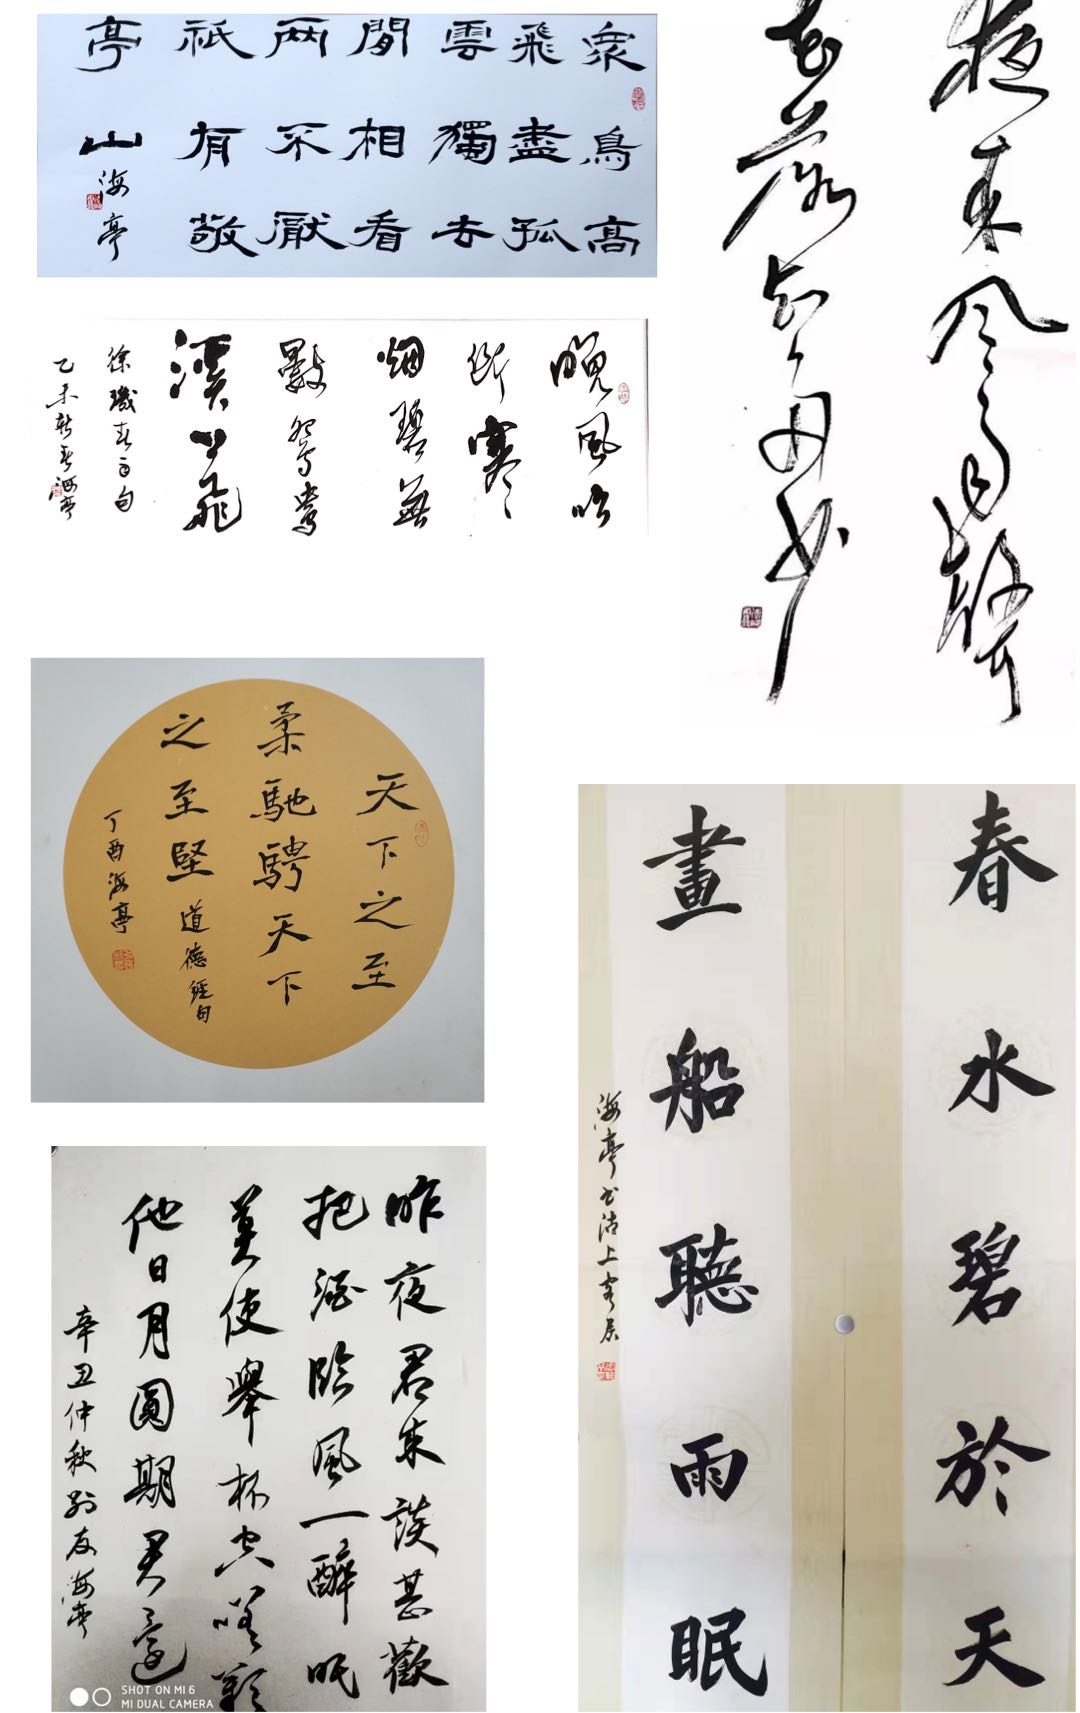 衆鳥高
飛盡孤
雲獨去
閒相看
两不厭
祇有敬
亭山
海亭
夜来风雨聲
花落知多少
晚風吹
断寒
烟碧無
數鴛鴦
溪上飛
徐璣春雨句
乙未新春海亭
天下之至
柔馳騁天下
之至堅
道德經句
丁酉海亭
春水碧於天
畫船聽雨眠
海亭书沽上寓居
昨夜君来談甚歡
把酒臨風一醉眠
莫使舉杯空嗟歎
他日月圓期君還
辛丑仲秋别友海亭
SHOT ON MI 6
MI DUAL CAMERA